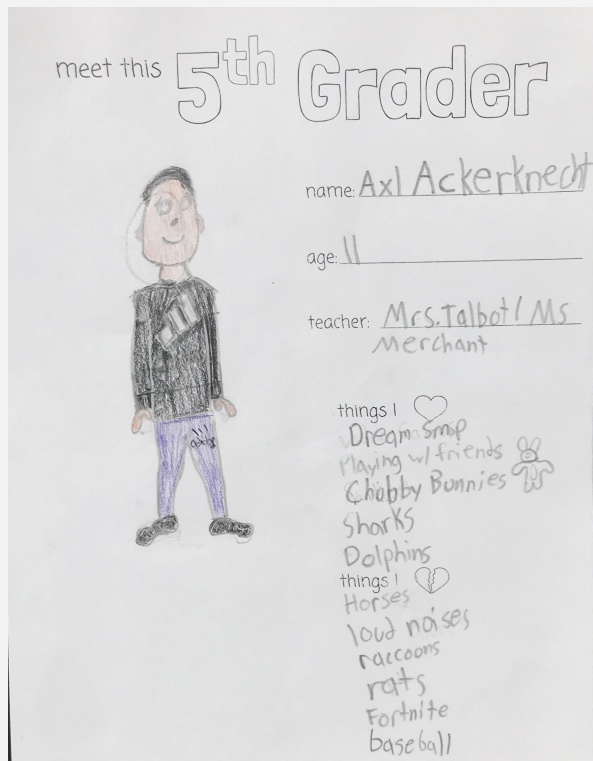 meet this 5th Grader
name: Axl Ackerknecht
age: 11
teacher: Mrs. Talbot / Ms
Merchant
things I
Dream Smp
Playing w/ friends
Chubby Bunnies
Sharks
Dolphins
things I
Horses
loud noises
raccoons
rats
Fortnite
baseball